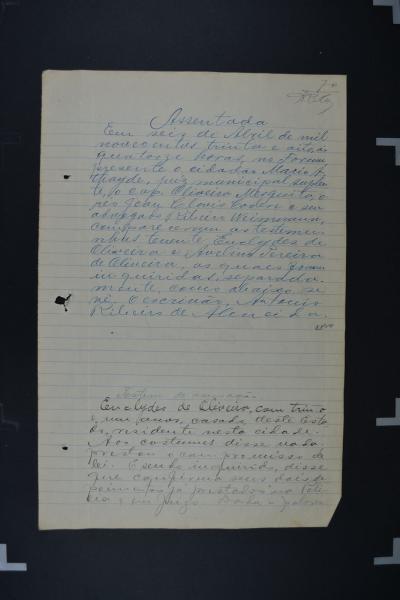 Assentada
Em seis de Abril de mil
novecentos trinta e oito, ás
quatorze horas, no Forum
presente o cidadão Mario A
thayde, juiz municipal, suplen
te, o cap. Oliveira Mesquita, o
reo João Clovis e seu
advogado, Ribeiro
compareceram as testemu
nhas tenente, Euclydes de
Oliveira e Avelino Pereira
de Oliveira, as quaes foram
inquiridas, separada
mente, como abaixo se
vê. O escrivão, Antonio
Ribeiro de Almeida.
Euclydes de Oliveira, com trinta
e um anos, casado, deste Esta
do, residente nesta cidade.
Aos costumes disse nada
prestou o compromisso de
lei. E sendo inquirido, disse
que confirma seus dois de
poimentos já prestados na Poli
cia e em juizo. Dada a palavra